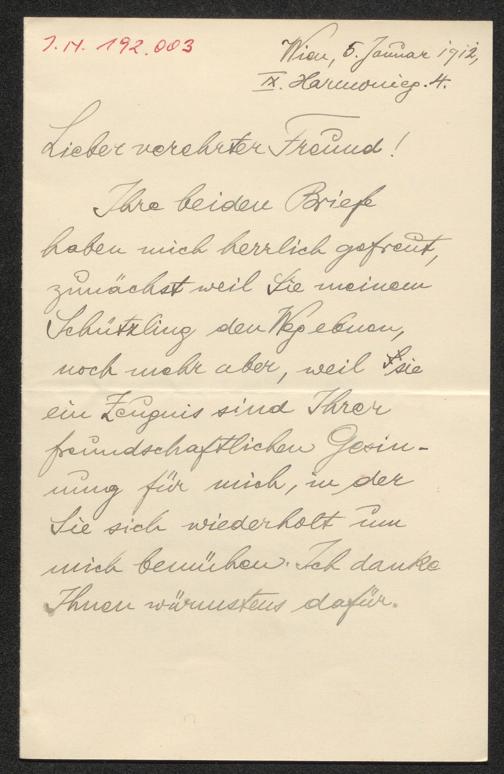 J.N. 192.003
Wien, 5. Januar 1912,
IX. Harmonieg. 4.
Lieber verehrter Freund!
Ihre beiden Briefe
haben mich herrlich gefreut,
zunächst weil Sie meinem
Schützling den Weg ebnen,
noch mehr aber, weil sie
ein Zeugnis sind Ihrer
freundschaftlichen Gesin-
nung für mich, in der
Sie sich wiederholt um
mich bemühen. Ich danke
Ihnen wärmstens dafür.